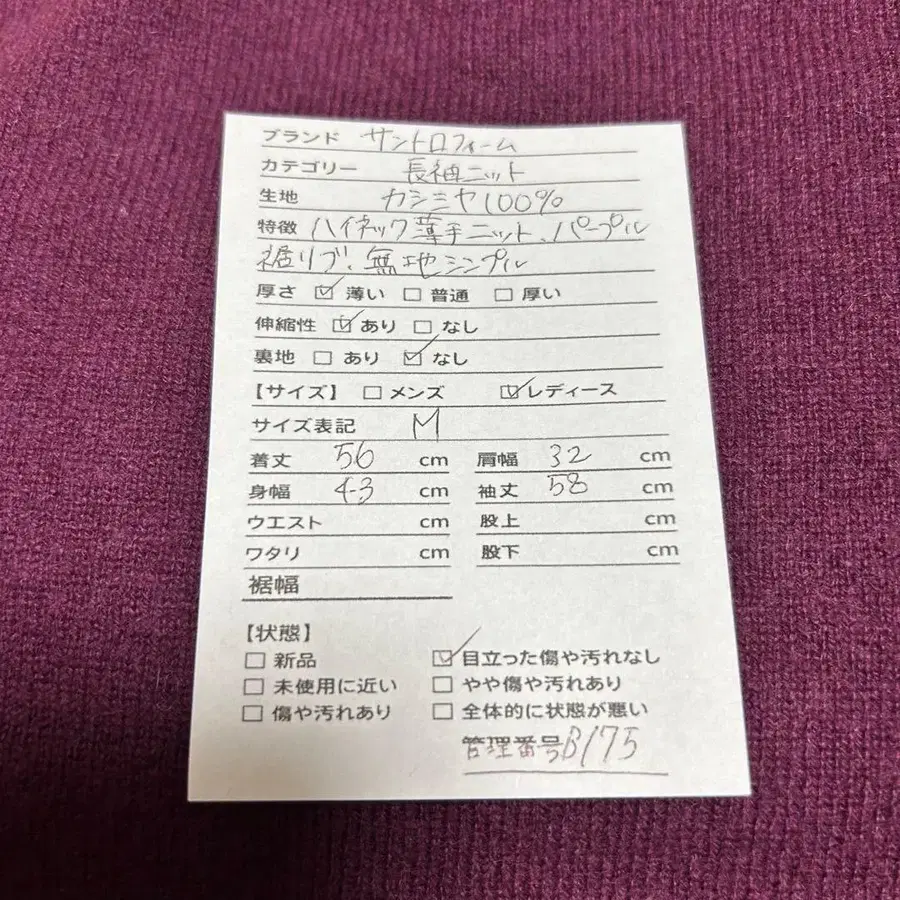 ブランド サントロフィーム
カテゴリー 長袖ニット
生地 カシミヤ100%
特徴 ハイネック薄手ニット、パープル
裾リブ、無地シンプル
厚さ ☑ 薄い □ 普通 □ 厚い
伸縮性 ☑ あり □ なし
裏地 □ あり ☑ なし
【サイズ】 □ メンズ ☑ レディース
サイズ表記 M
着丈 56 cm 肩幅 32 cm
身幅 43 cm 袖丈 58 cm
ウエスト cm 股上 cm
ワタリ cm 股下 cm
裾幅
【状態】
□ 新品 ☑ 目立った傷や汚れなし
□ 未使用に近い □ やや傷や汚れあり
□ 傷や汚れあり □ 全体的に状態が悪い
管理番号B175